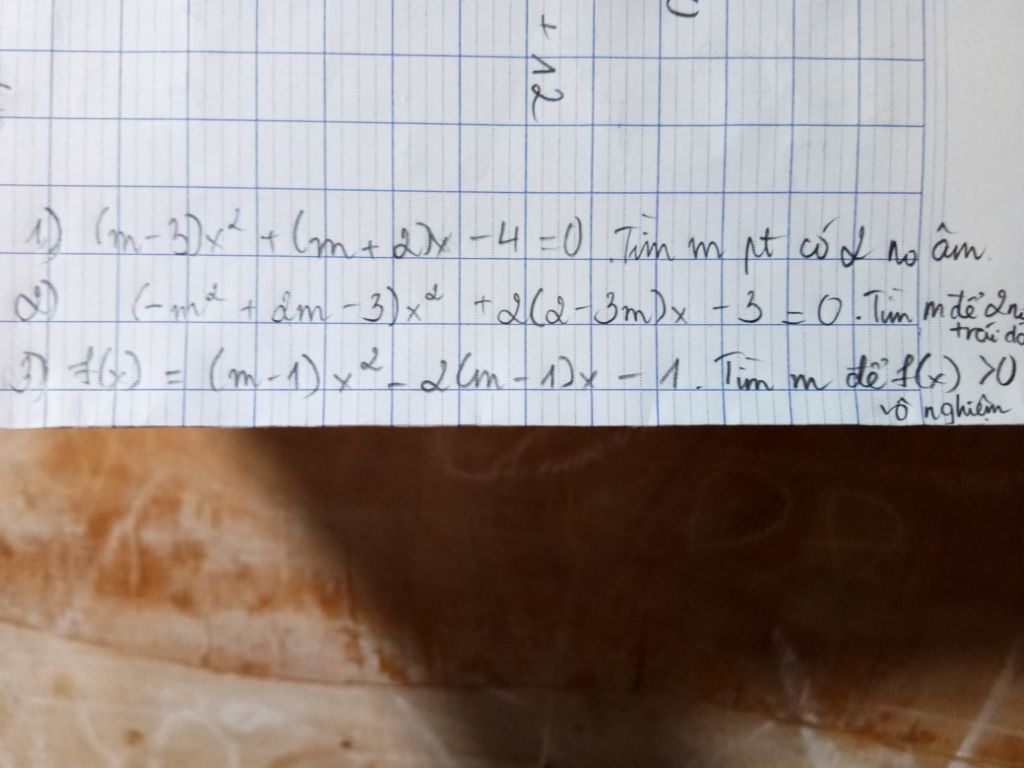 + 12
1) (m-3)x² + (m + 2)x - 4 = 0. Tìm m pt có 2 no âm.
2) (-m² + 2m - 3)x² + 2(2 - 3m)x - 3 = 0. Tìm m để 2n
trái dấ
3) f(x) = (m-1)x² - 2(m-1)x - 1. Tìm m để f(x) >0
vô nghiệm